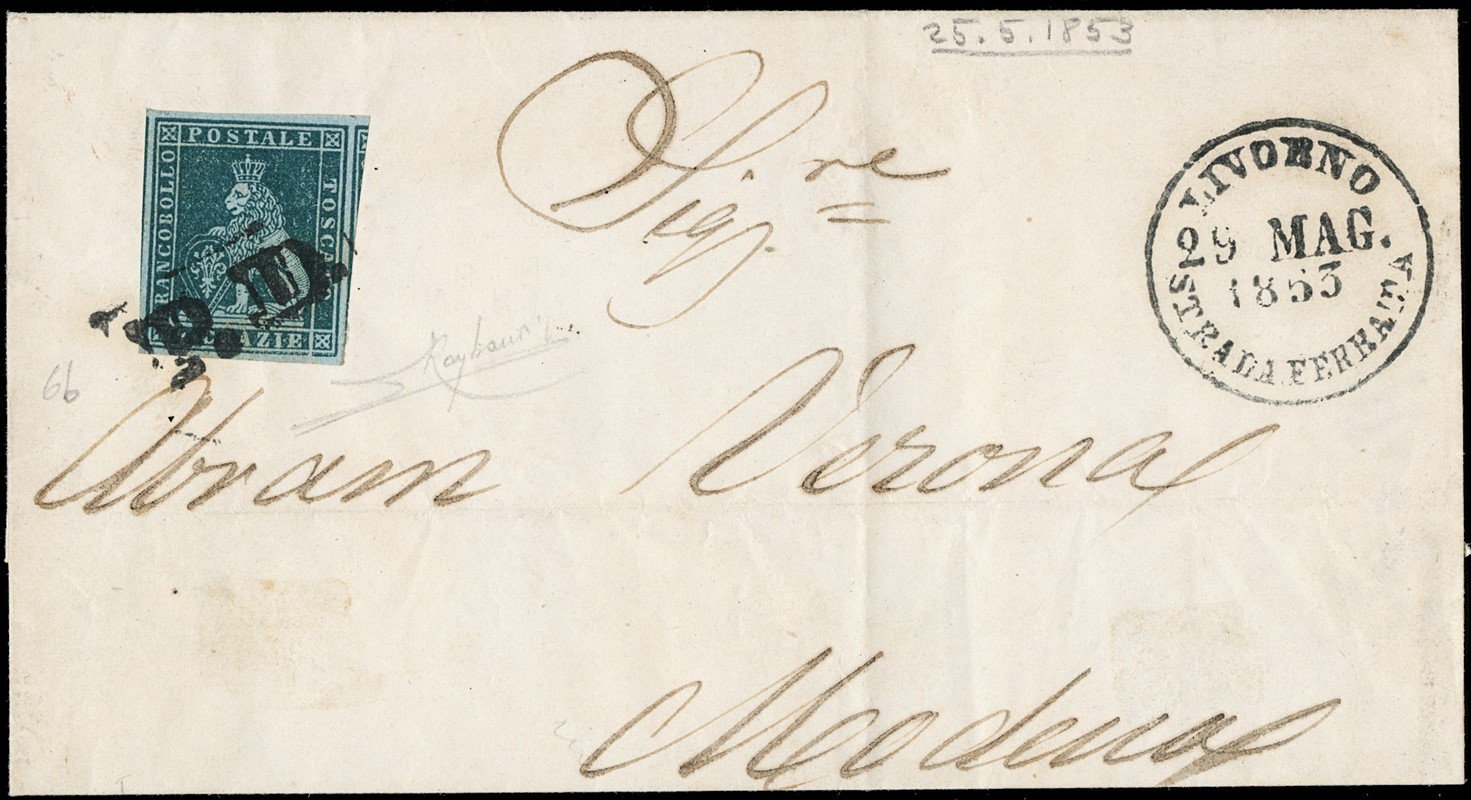 25.5.1853
POSTALE
FRANCOBOLLO
TOSCANO
CRAZIE
P.D.
LIVORNO
29 MAG.
1853
STRADA FERRATA
Sig.re
Raybaudi
6b
Abram Verona
Modena